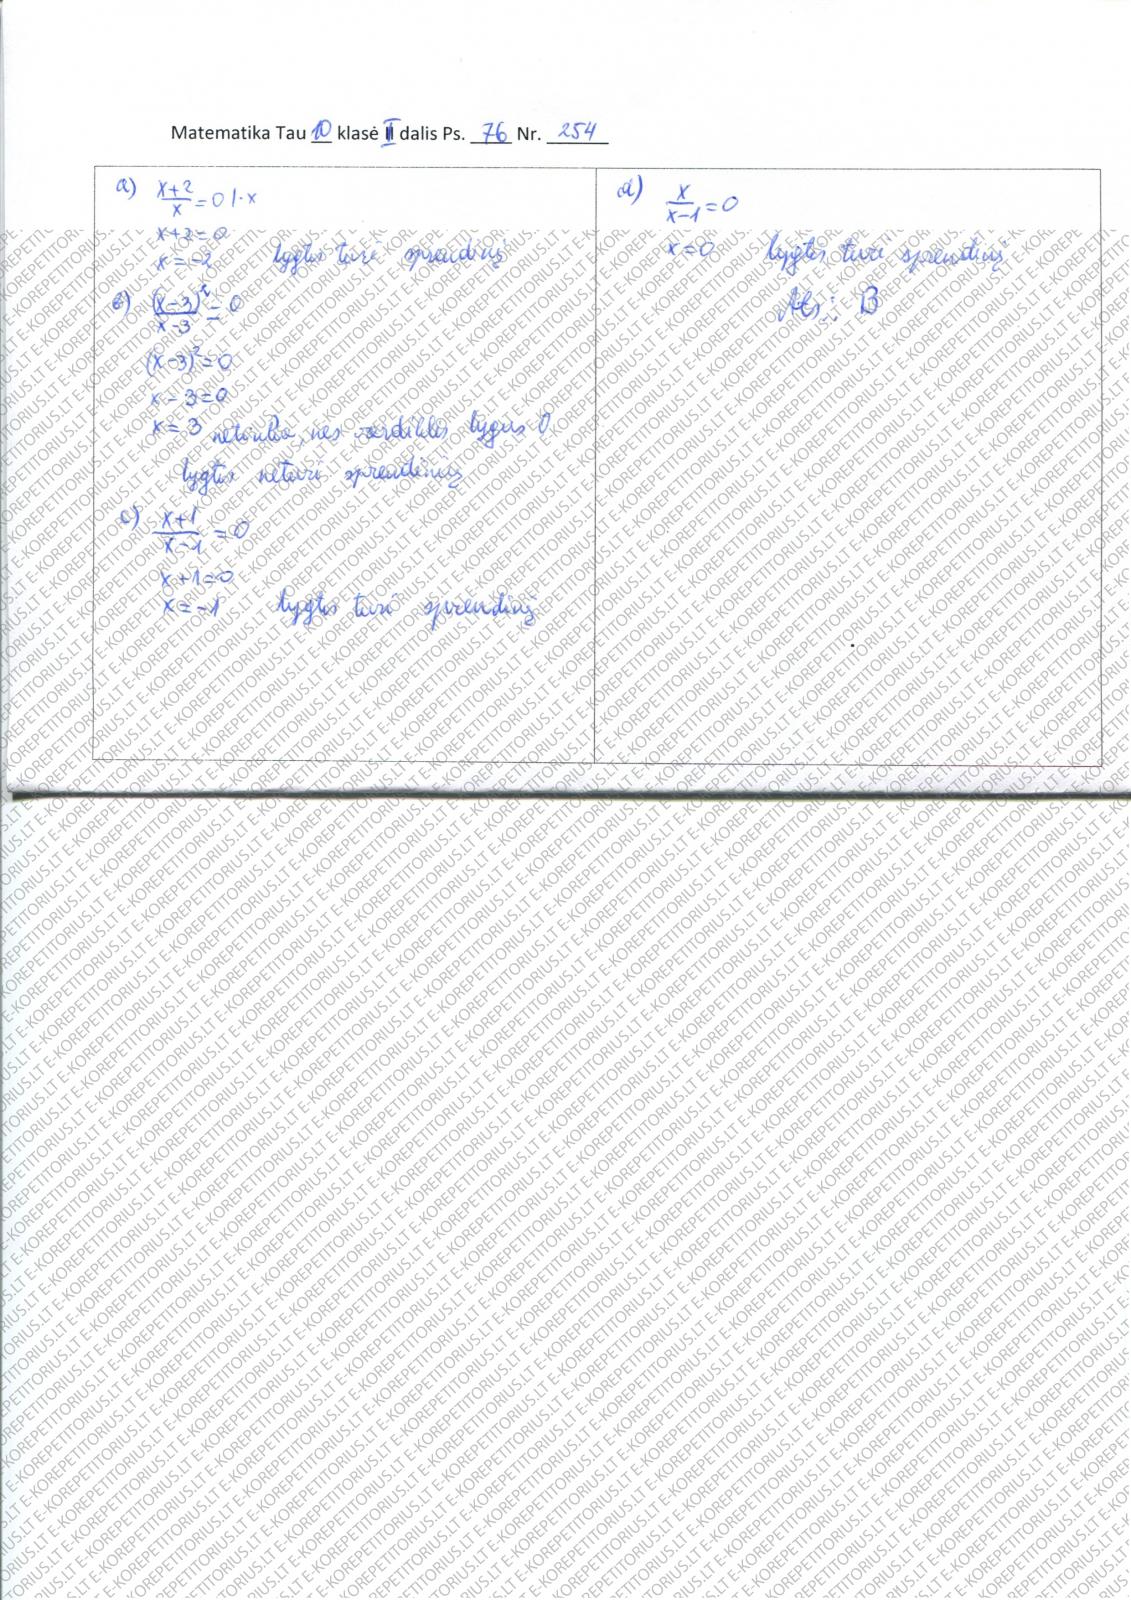 Matematika Tau 10 klasė II dalis Ps. 76 Nr. 254
a) x+2/x = 0 | · x
x+2=0
x=-2 lygtis turi sprendinį
b) (x-3)²/x-3 = 0
(x-3)²=0
x-3=0
x=3 netinka, nes vardiklis lygus 0
lygtis neturi sprendinių
c) x+1/x-1 = 0
x+1=0
x=-1 lygtis turi sprendinį
d) x/x-1 = 0
x=0 lygtis turi sprendinį
Ats.: B
E-KOREPETITORIUS.LT